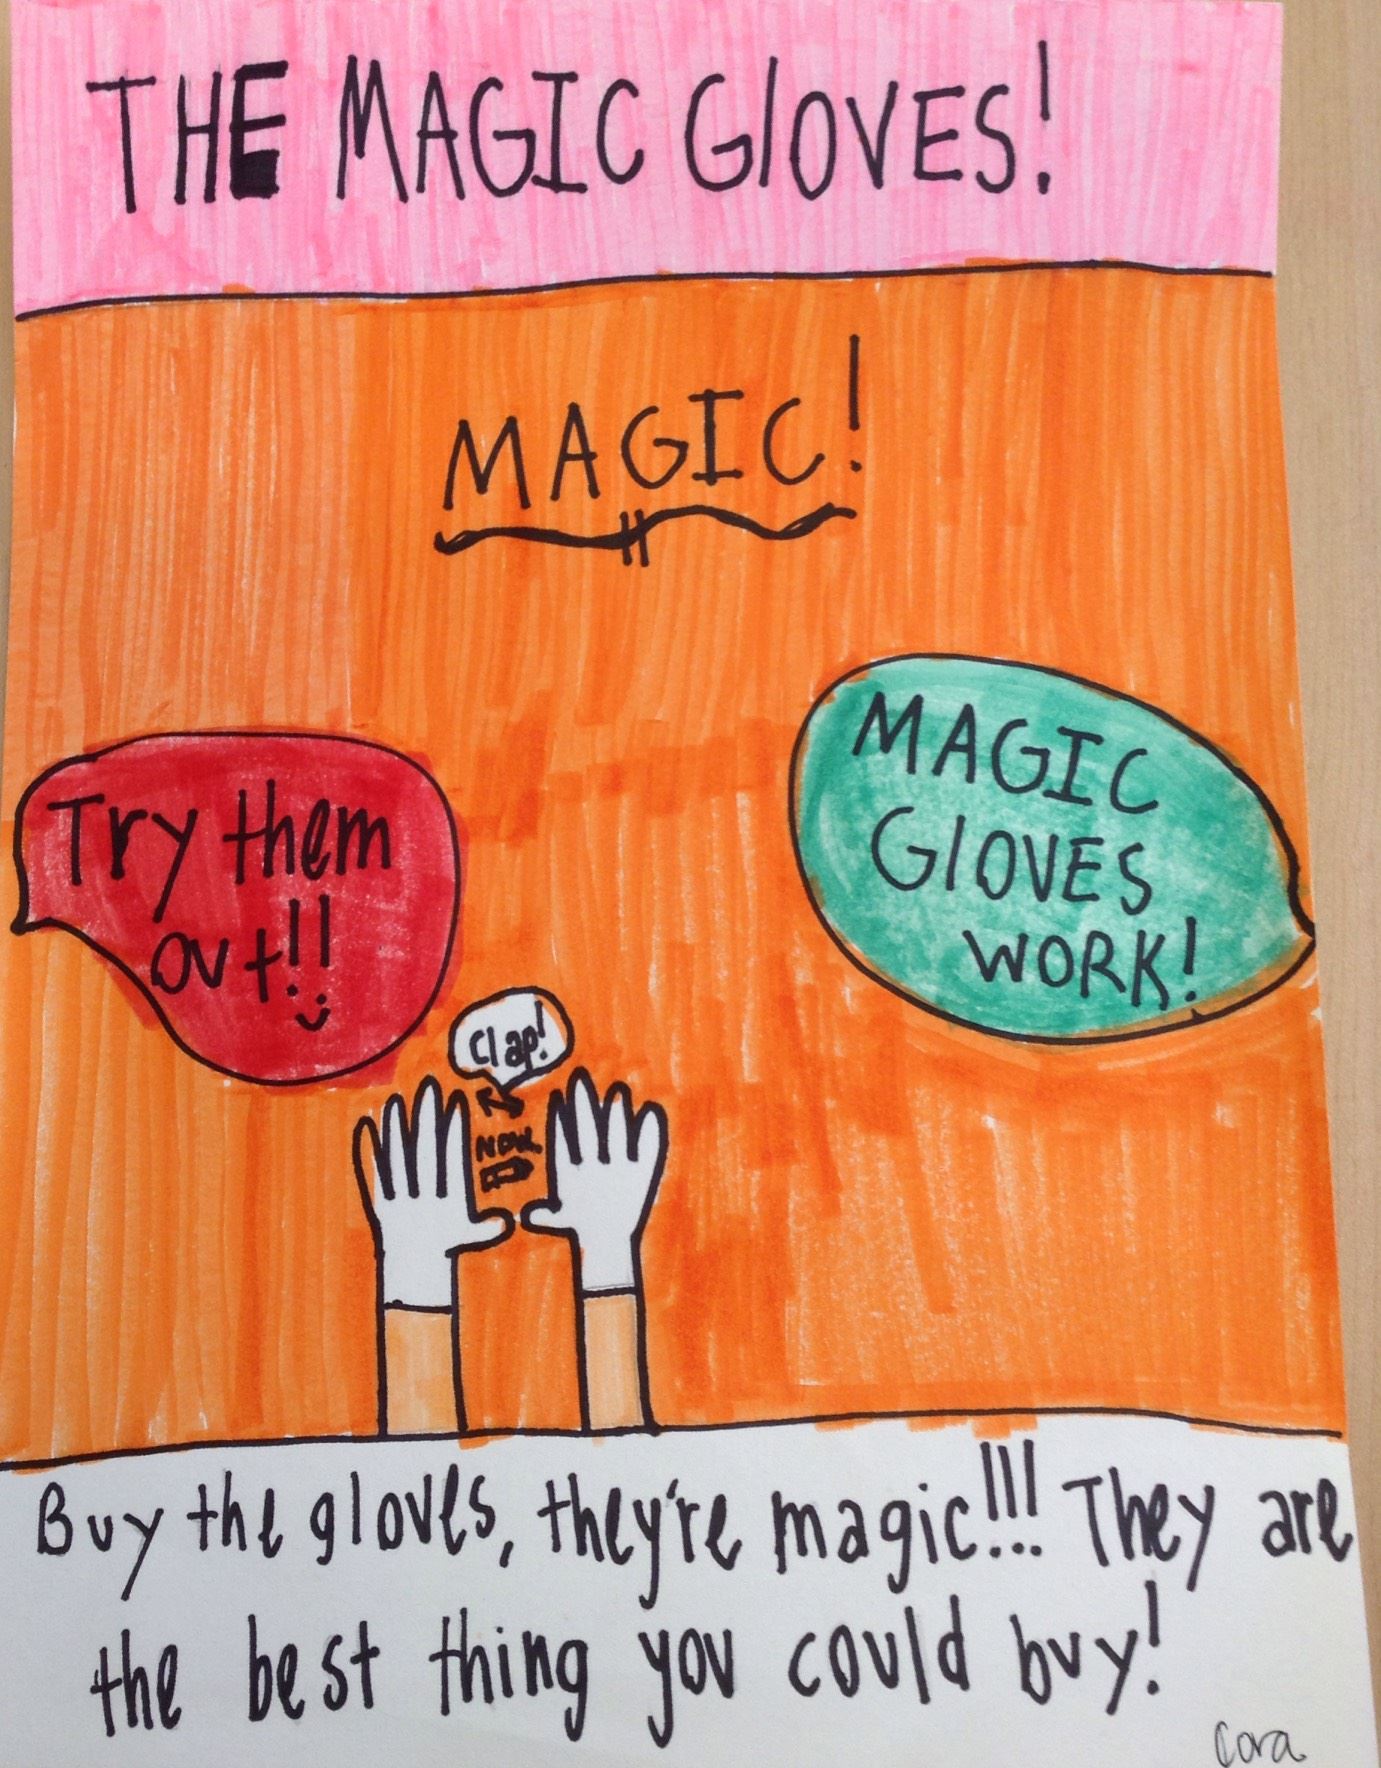 THE MAGIC GlOVES!
MAGIC!
Try them
out!!
MAGIC
GlOVES
WORK!
Clap!
Buy the gloves, they're magic!!! They are
the best thing you could buy!
Cora